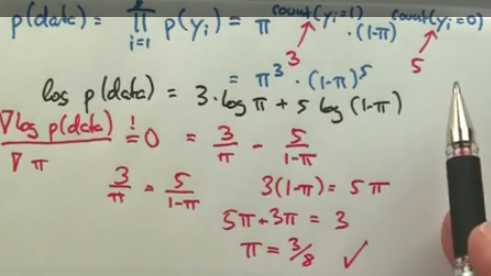 p(data) = ∏ i=1 p(yᵢ) = π^count(yᵢ=1) · (1-π)^count(yᵢ=0)
3 5
= π³ · (1-π)⁵
log p(data) = 3·log π + 5 log (1-π)
∇log p(data) / ∇π != 0 = 3/π - 5/(1-π)
3/π = 5/(1-π) 3(1-π) = 5π
5π+3π = 3
π = 3/8 ✓